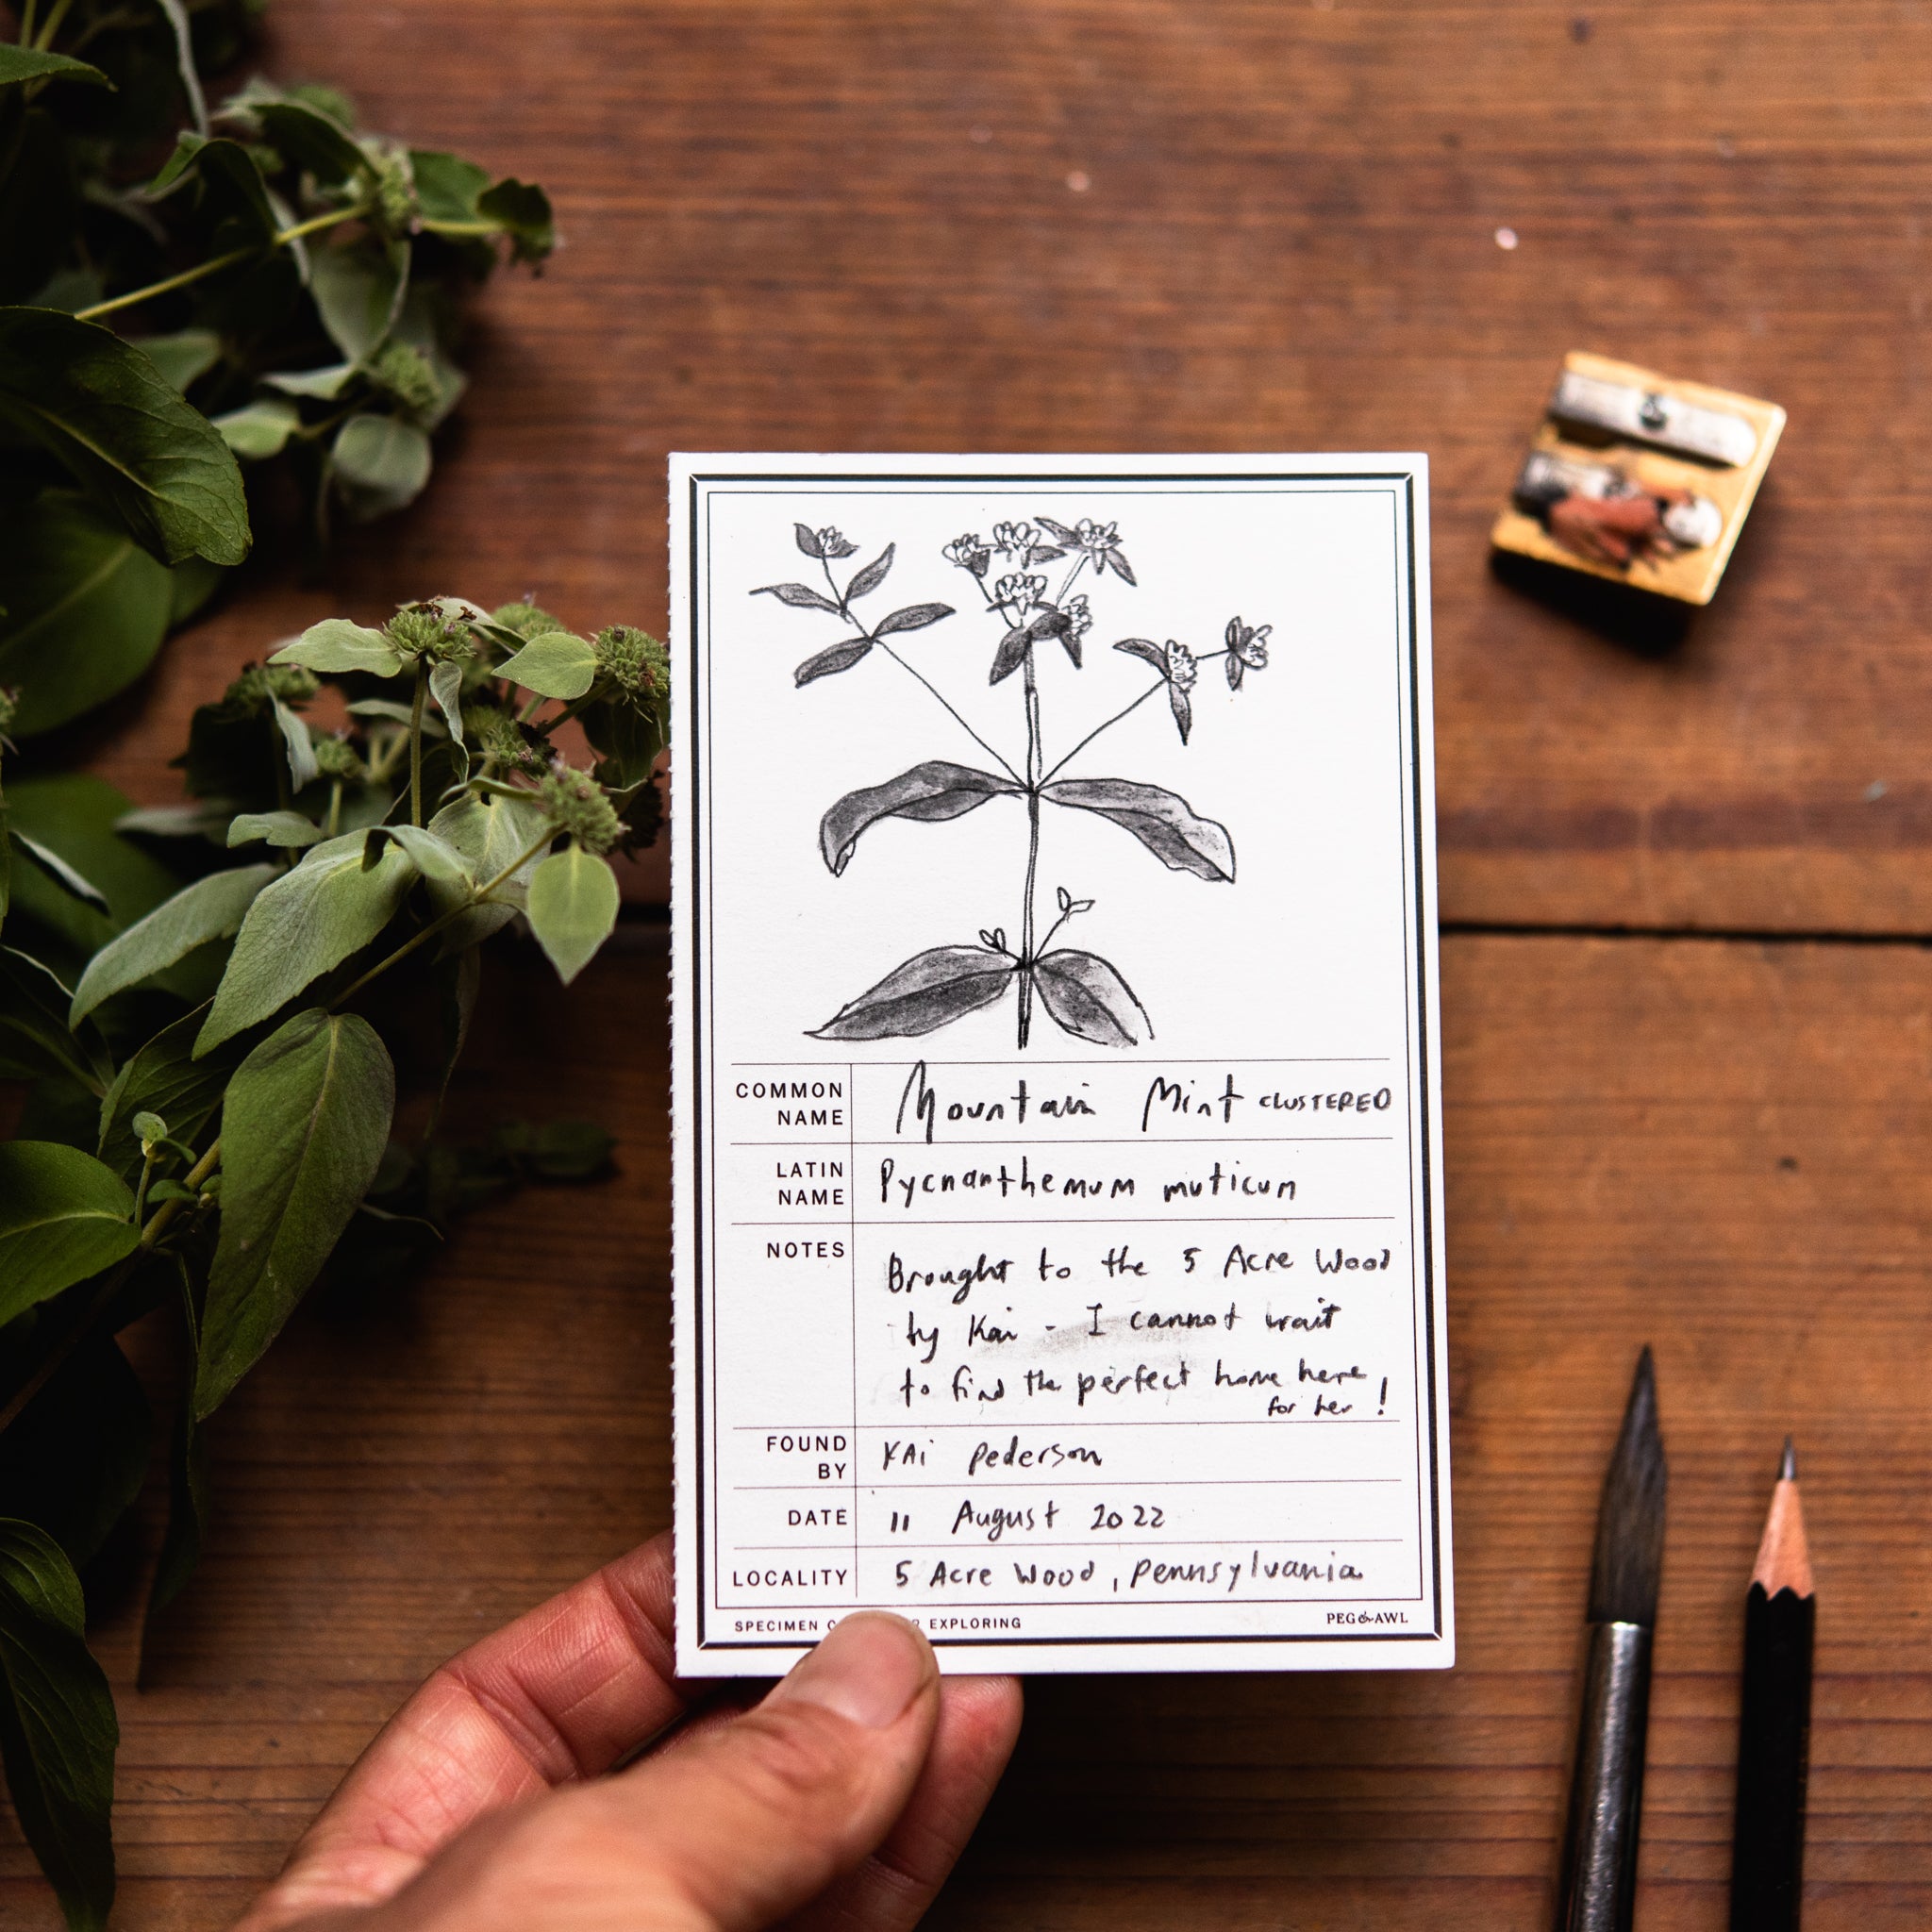 COMMON
NAME
Mountain Mint CLUSTERED
LATIN
NAME
Pycnanthemum muticum
NOTES
Brought to the 5 Acre Wood
by Kai - I cannot wait
to find the perfect home here
for her !
FOUND
BY
KAi Pederson
DATE
11 August 2022
LOCALITY
5 Acre Wood, Pennsylvania
SPECIMEN EXPLORING
PEG & AWL